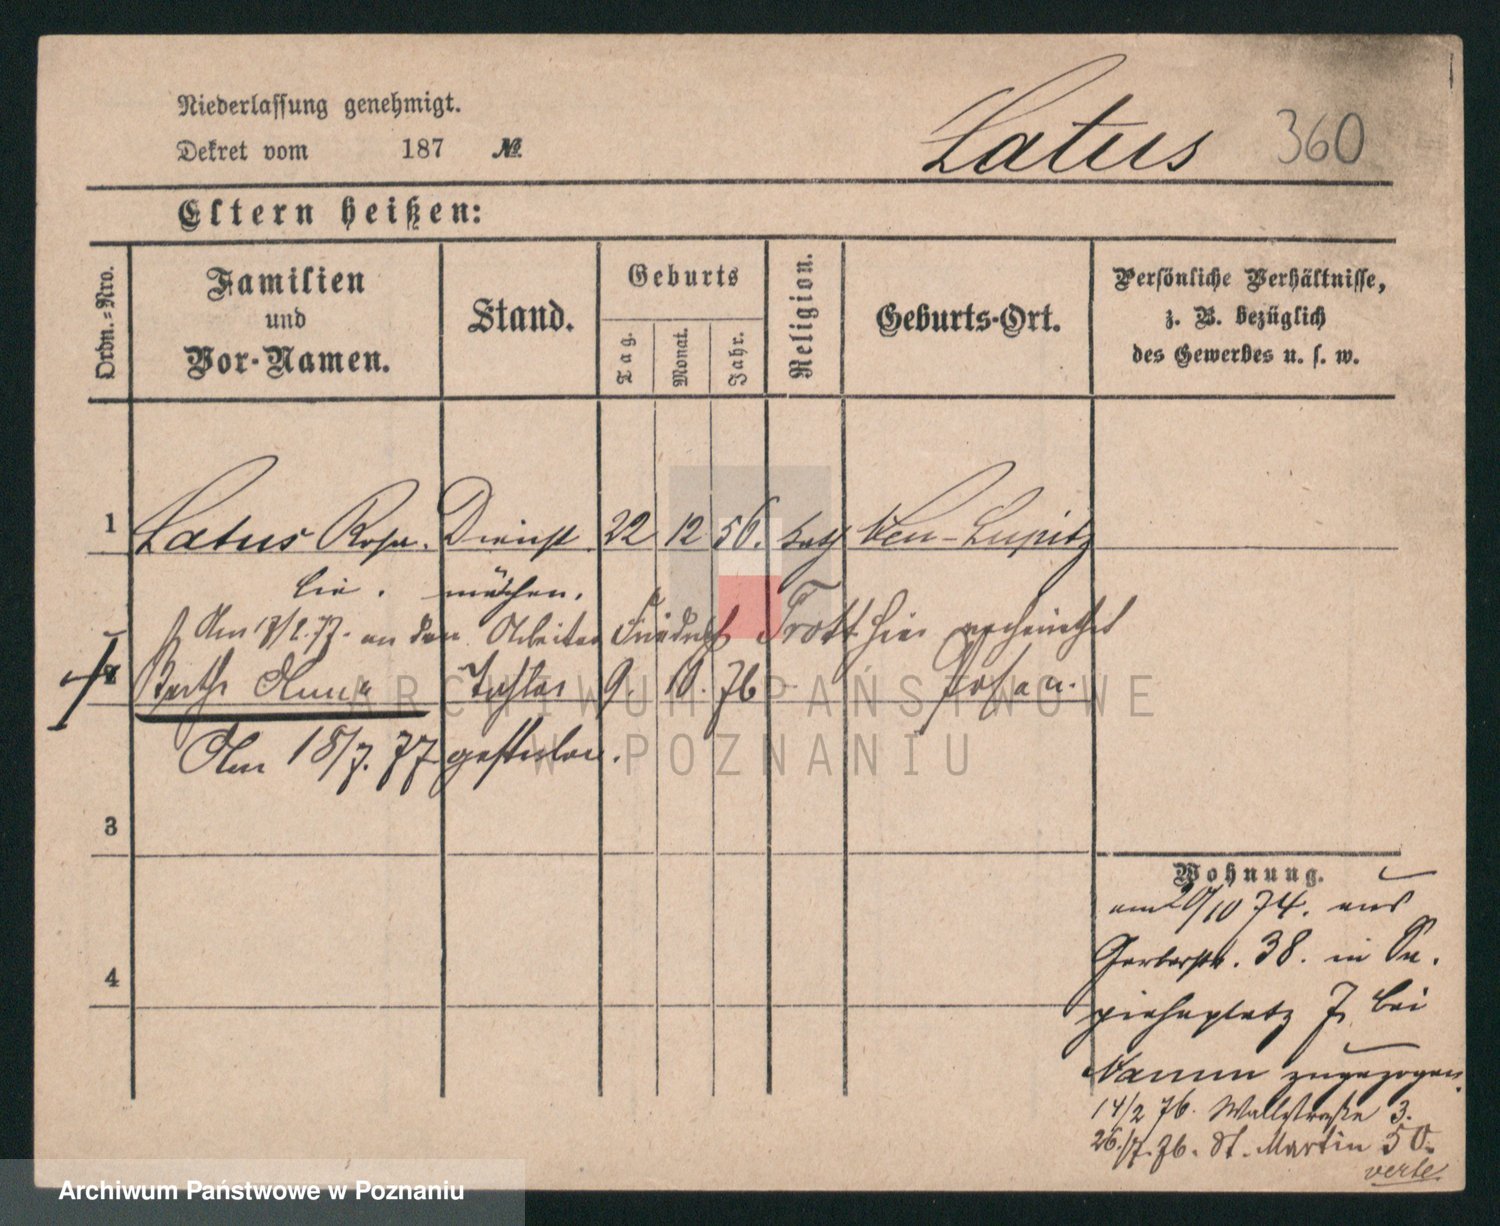 Niederlassung genehmigt.
Dekret vom 187 №.
Latus 360
Eltern heißen:
Ordn.-Nro.
Familien
und
Vor-Namen.
Stand.
Geburts
Tag.
Monat.
Jahr.
Religion.
Geburts-Ort.
Persönliche Verhältnisse,
z. B. bezüglich
des Gewerbes u. s. w.
1 Latus Rosa- Dienst 22 12 56. kath Neu-
lie. mädchen.
Am an den Arbeiter Friedrich Trott hier
2 Bertha Anna Tochter 9. 10. 76 Posen.
Am 18/7. 77 gestorben.
3
4
Wohnung.
am 29/10 74. aus
Gerberstr. 38. in Sa-
piehaplatz 7. bei
zugezogen.
14/2 76. Wallstraße 3.
26/7. 76. St. Martin 50.
verte
ARCHIWUM PAŃSTWOWE
W POZNANIU
Archiwum Państwowe w Poznaniu